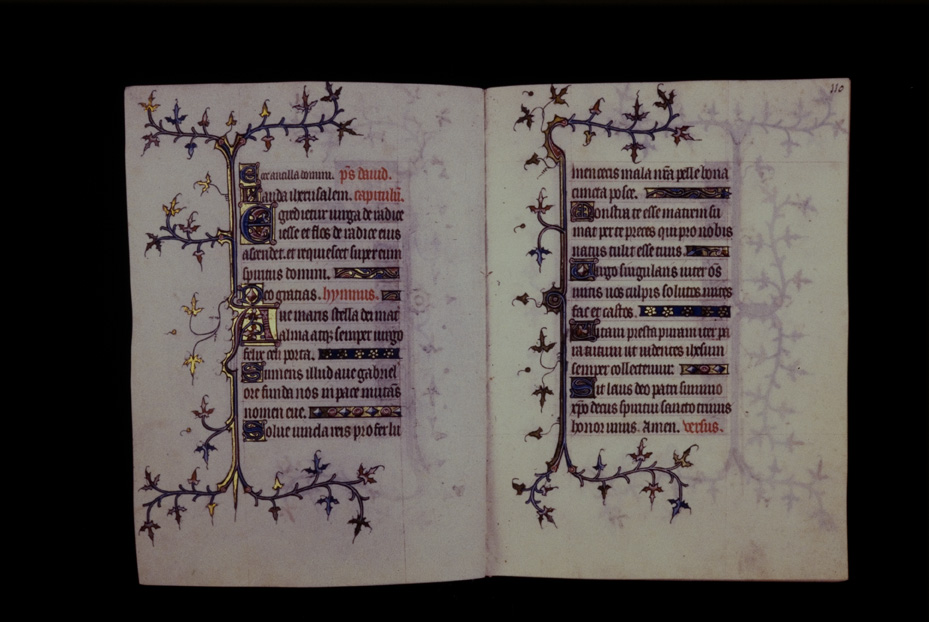 Ecce ancilla domini. ps̄ dauid.
Lauda iherusalem. capitulū.
Egredietur uirga de radice
iesse et flos de radice eius
ascendet. et requiescet super eum
spiritus domini.
Deo gratias. hympnus.
Aue maris stella dei mater
alma atqꝫ semper uirgo
felix celi porta.
Sumens illud aue gabrielis
ore funda nos in pace mutās
nomen eue.
Solue uincla reis profer lu
110
men cecis mala nr̄a pelle bona
cuncta posce.
Monstra te esse matrem su
mat per te preces qui pro nobis
natus tulit esse tuus.
Uirgo singularis inter ōs
mitis nos culpis solutos mites
fac et castos.
Uitam presta puram iter pa
ra tutum ut uidentes ihesum
semper collectemur.
Sit laus deo patri summo
xp̄o decus spiritui sancto trinus
honor unus. Amen. versus.